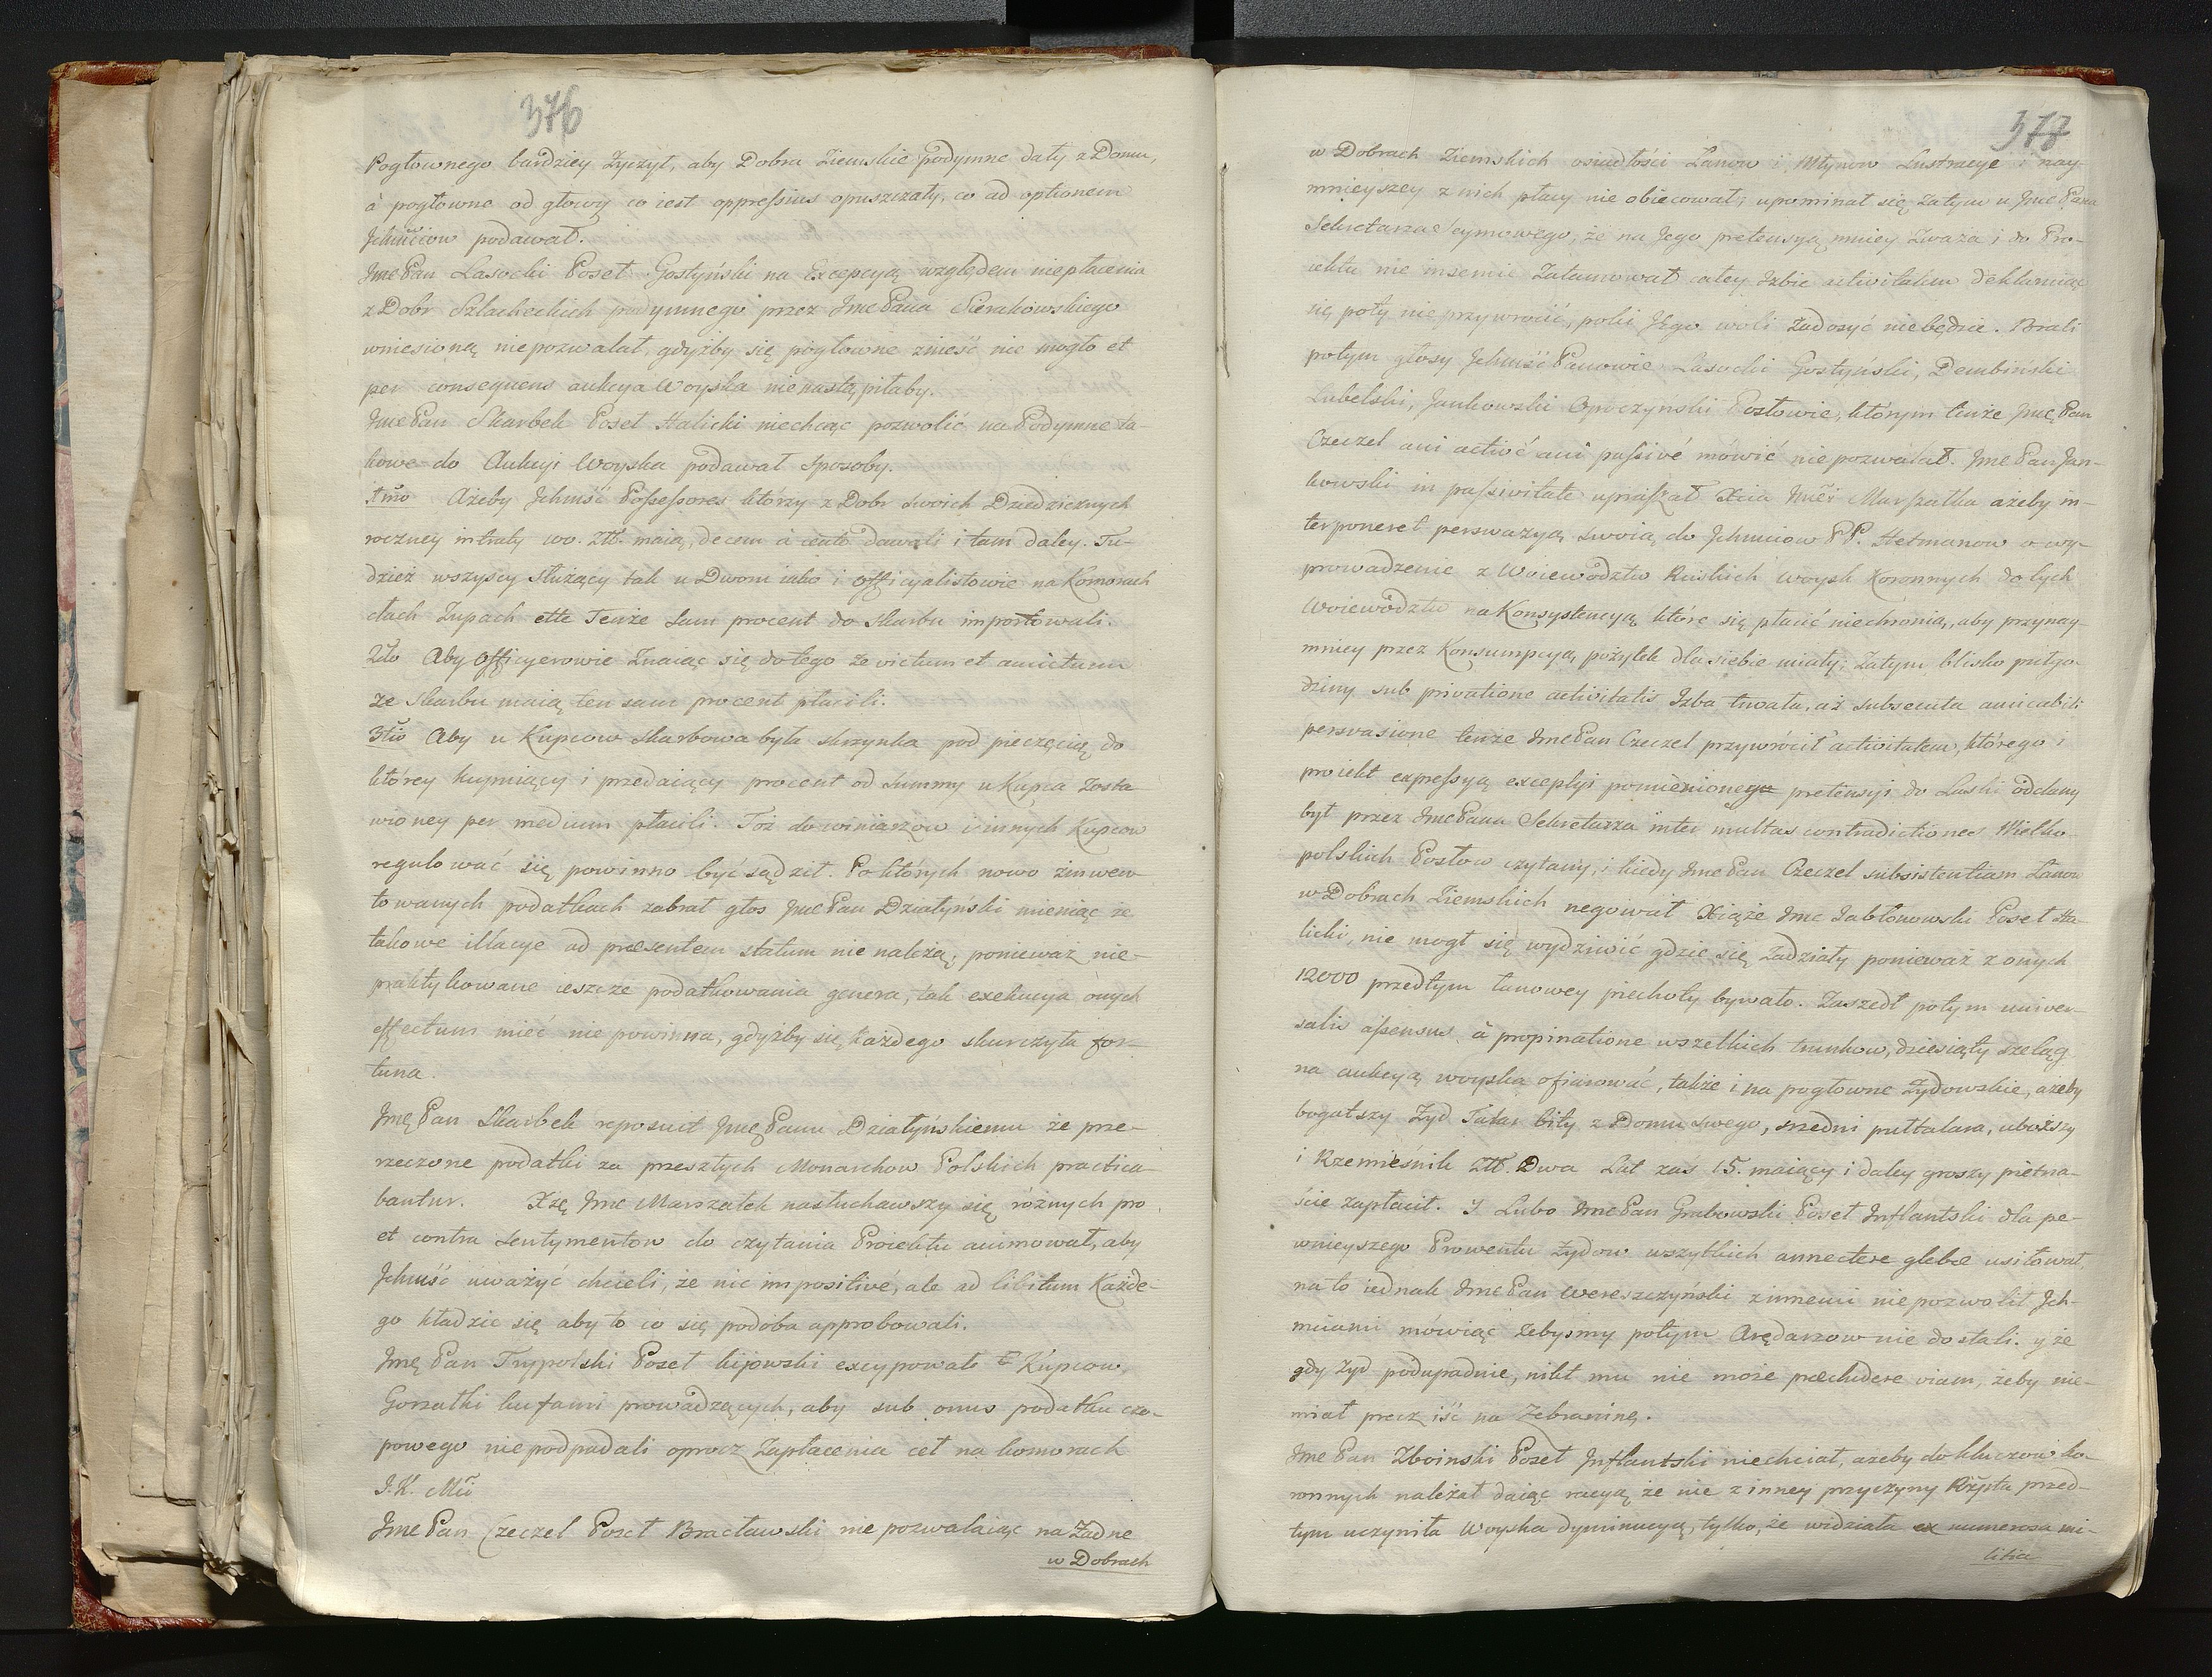 376
Pogłownego bardziey Zyczył, aby Dobra Ziemskie podymne dały z Domu,
à pogłowne od głowy co iest oppressius opuszczały, co ad optionem
Jchmciow podawał.
Jme Pan Lasocki Poseł Gostyński na Excepcyą względem niepłacenia
z Dobr Szlacheckich podymnego przez Jme Pana Sierakowskiego
wniesioną niepozwalał, gdyżby się pogłowne znieść nie mogło et
per consequens aukcya Woyska nienastąpiłaby.
Jme Pan Skarbek Poseł Halicki niechcąc pozwolić na Podymne ta-
kowe do Aukcyi Woyska podawał sposoby.
1mo Ażeby Jchmść Possessores którzy z Dobr swoich Dziedzicznych
roczney intraty 100. Złł. maią, decem à cento dawali i tam daley. Tu-
dzież wszyscy służący tak u Dworu iako i officyalistowie na Komorach
cłach Zupach ettc Tenże sam procent do Skarbu importowali.
2do Aby Officyerowie Znaiąc się do tego ze victum et amictum
ze Skarbu maią ten sam procent płacili.
3tio Aby u Kupcow skarbowa była skrzynka pod pieczęcią do
którey kupuiący i przedaiący procent od Summy u Kupca zosta
wioney per medium płacili. Toż do winiarzow i innych Kupcow
regulować się powinno być sądził. Po których nowo zinwen-
towanych podatkach zabrał głos Jme Pan Działyński mieniąc że
takowe illacye ad præsentem statum nie należą, ponieważ nie-
praktykowane ieszcze podatkowania genera, tak exekucya onych
effectum mieć nie powinna, gdyżby się każdego skurczyła for-
tuna.
Jmę Pan Skarbek reposuit Jmę Panu Działyńskiemu że prze-
rzeczone podatki za przeszłych Monarchow Polskich practica-
bantur. Xżę Jmc Marszałek nasłuchawszy się różnych pro
et contra sentymentow do czytania Proiektu animował, aby
Jchmść uważyć chcieli, że nic impositivé, ale ad libitum Każde-
go kładzie się aby to co się podoba approbowali.
Jmę Pan Trypolski Poseł kijowski excypował Kupcow,
Gorzałki kufami prowadzących, aby sub onus podatku czo-
powego niepodpadali oprocz Zapłacenia ceł na komorach
J. K. Mći
Jme Pan Czeczel Poseł Bracławski nie pozwalaiąc na Zadne
w Dobrach
377
w Dobrach Ziemskich osiadłości Łanow i Młynow Lustracye i nay
mnieyszey z nich płacy nie obiecował; upominał się Zatym u Jme Pana
Sekretarza Seymowego, że na Jego pretensyą mniey Zważa i do Pro-
iektu nie inseruie Zatamował całey Izbie activitatem deklaruiąc
się poty nie przywrócić, poki Jego woli Zadosyć niebędzie. Brali
potym głosy Jchmść Panowie Lasocki Gostyński, Dembiński
Lubelski, Jankowski Opoczynski Posłowie, którym tenże Jmę Pan
Czeczel ani activé ani passivé mówić nie pozwalał. Jme Pan Jan-
kowski in passivitate upraszał Xcia Jmci Marszałka ażeby in-
terponeret perswazyą swoią do Jchmciow PP. Hetmanow o wy-
prowadzenie z Woiewództw Ruskich woysk Koronnych do tych
Woiewództw na Konsystencyą które się płacić niechronią, aby przynay-
mniey przez Konsumpcyą pożytek dla siebie miały; Zatym blisko pułgo-
dziny sub privatione activitatis Izba trwała, aż subsecuta amicabili
persvasione tenże Jme Pan Czeczel przywrócił activitatem, którego i
proiekt expressyą excepcyi pomienioney pretensyi do Laski oddany
był przez Jme Pana Sekretarza inter multas contradictiones Wielko-
polskich Posłow czytany, i kiedy Jme Pan Czeczel subsistentiam Łanow
w Dobrach Ziemskich negował Xiąże Jmc Jabłonowski Poseł Ha-
licki, nie mogł się wydziwić gdzie się Zadziały ponieważ z onych
12000 przedtym łanowey piechoty bywało. Zaszedł potym univer-
salis assensus à propinatione wszelkich trunkow, dziesiąty szeląg
na aukcyą woyska ofiarować, także i na pogłowne Zydowskie, ażeby
bogatszy Zyd Talar bity z Domu swego, średni pułtalara, uboższy
i Rzemieśnik Złł. Dwa Lat zaś 15. maiący i daley groszy piętna-
ście zapłacił. I Lubo Jme Pan Grabowski Poseł Inflantski dla pe-
wnieyszego Prowentu Zydow wszytkich annectere glebæ usiłował,
na to iednak Jme Pan Wereszczyński z innemi nie pozwolił Jch-
mciami mówiąc żebysmy potym Arędarzow nie dostali. y że
gdy Zyd podupadnie, nikt mu nie może præcludere viam, żeby nie-
miał precz iść na Zebraninę.
Jme Pan Zboinski Poseł Inflantski niechciał, ażeby do kluczow ko-
ronnych należał daiąc racyą że nie z inney przyczyny Rzpta przed-
tym uczyniła Woyska dyminucyą, tylko, że widziała ex numerosa mi-
litia